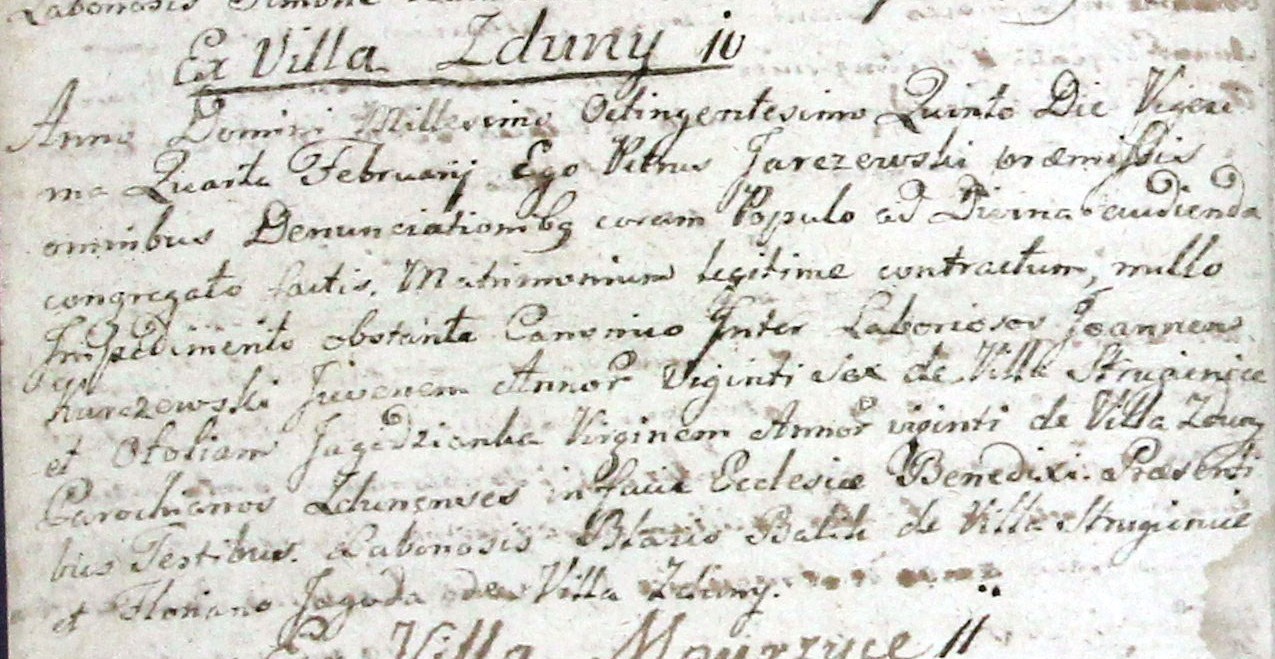 Laboriosis Simone
Ex Villa Zduny 10
Anno Domini Millesimo Octingentesimo Quinto Die Vigesi
ma Quarta Februarij Ego Petrus Jarczewski præmissis
omnibus Denunciationibq coram Populo ad Divina audienda
congregato factis, Matrimonium legitime contractum, nullo
Impedimento obstante Canonico Inter Laboriosos Joannem
Kurczewski Juvenem Annor Viginti Sex de Villa Strugienice
et Otoliam Jagodzianka Virginem Annor viginti de Villa Zduny
Parochianos Zdunenses in facie Ecclesiæ Benedixi. Præsenti
bus Testibus. Laboriosis Blasio Balik de Villa Strugienice
et Floriano Jagoda de Villa Zduny.
Ex Villa Maurzyce 11